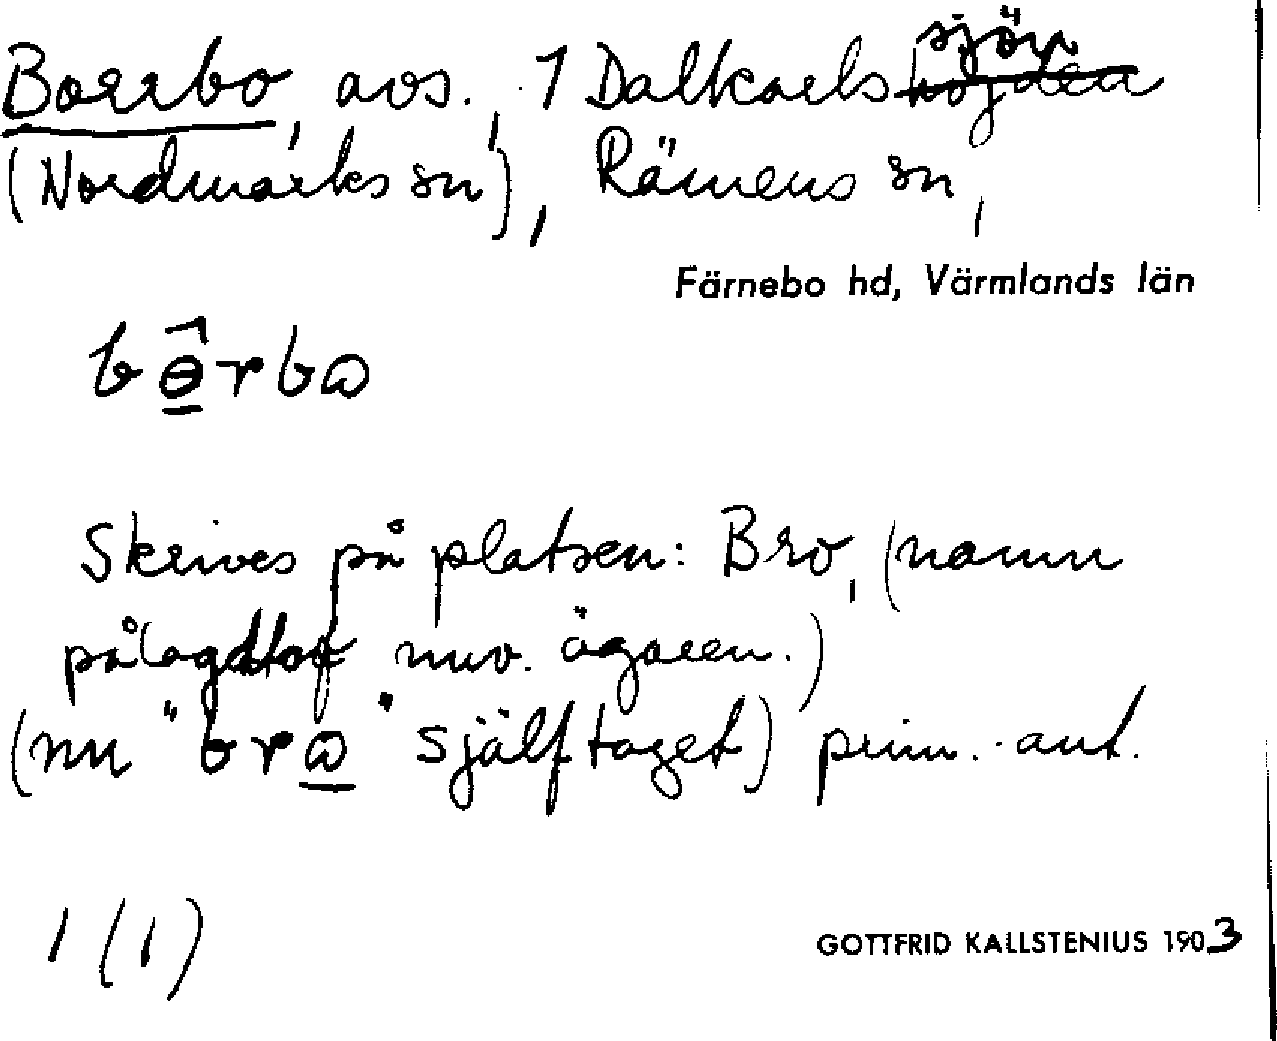 Borrbo, avs., 1 Dalkarlssjön
(Nordmarks sn), Rämens sn,
Färnebo hd, Värmlands län
Skrives på platsen: Bro, (namn
pålagdt af nuv. ägaren.)
(nu "brω" själftaget) prim. ant.
1 (1)
GOTTFRID KALLSTENIUS 1903